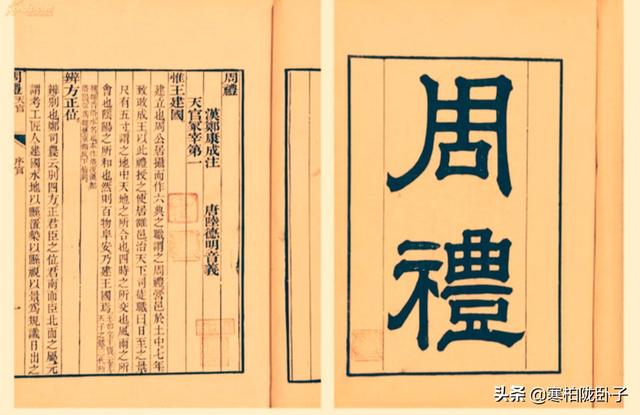 周禮
漢鄭康成注
天官冢宰第一　唐陸德明音義
惟王建國
建立也周公居攝而作六典之職謂之周禮營邑於土中七年
致政成王以此禮授之使居雒邑治天下司徒職曰日至之景
尺有五寸謂之地中天地之所合也四時之所交也風雨之所
會也陰陽之所和也然則百物阜安乃建王國焉
辨方正位
辨別也鄭司農云別四方正君臣之位君南面臣北面之屬元
謂考工匠人建國水地以縣置槷以縣視以景爲規識日出之
周禮
天官
序官
一
周禮
头条 @寒柏陇卧子